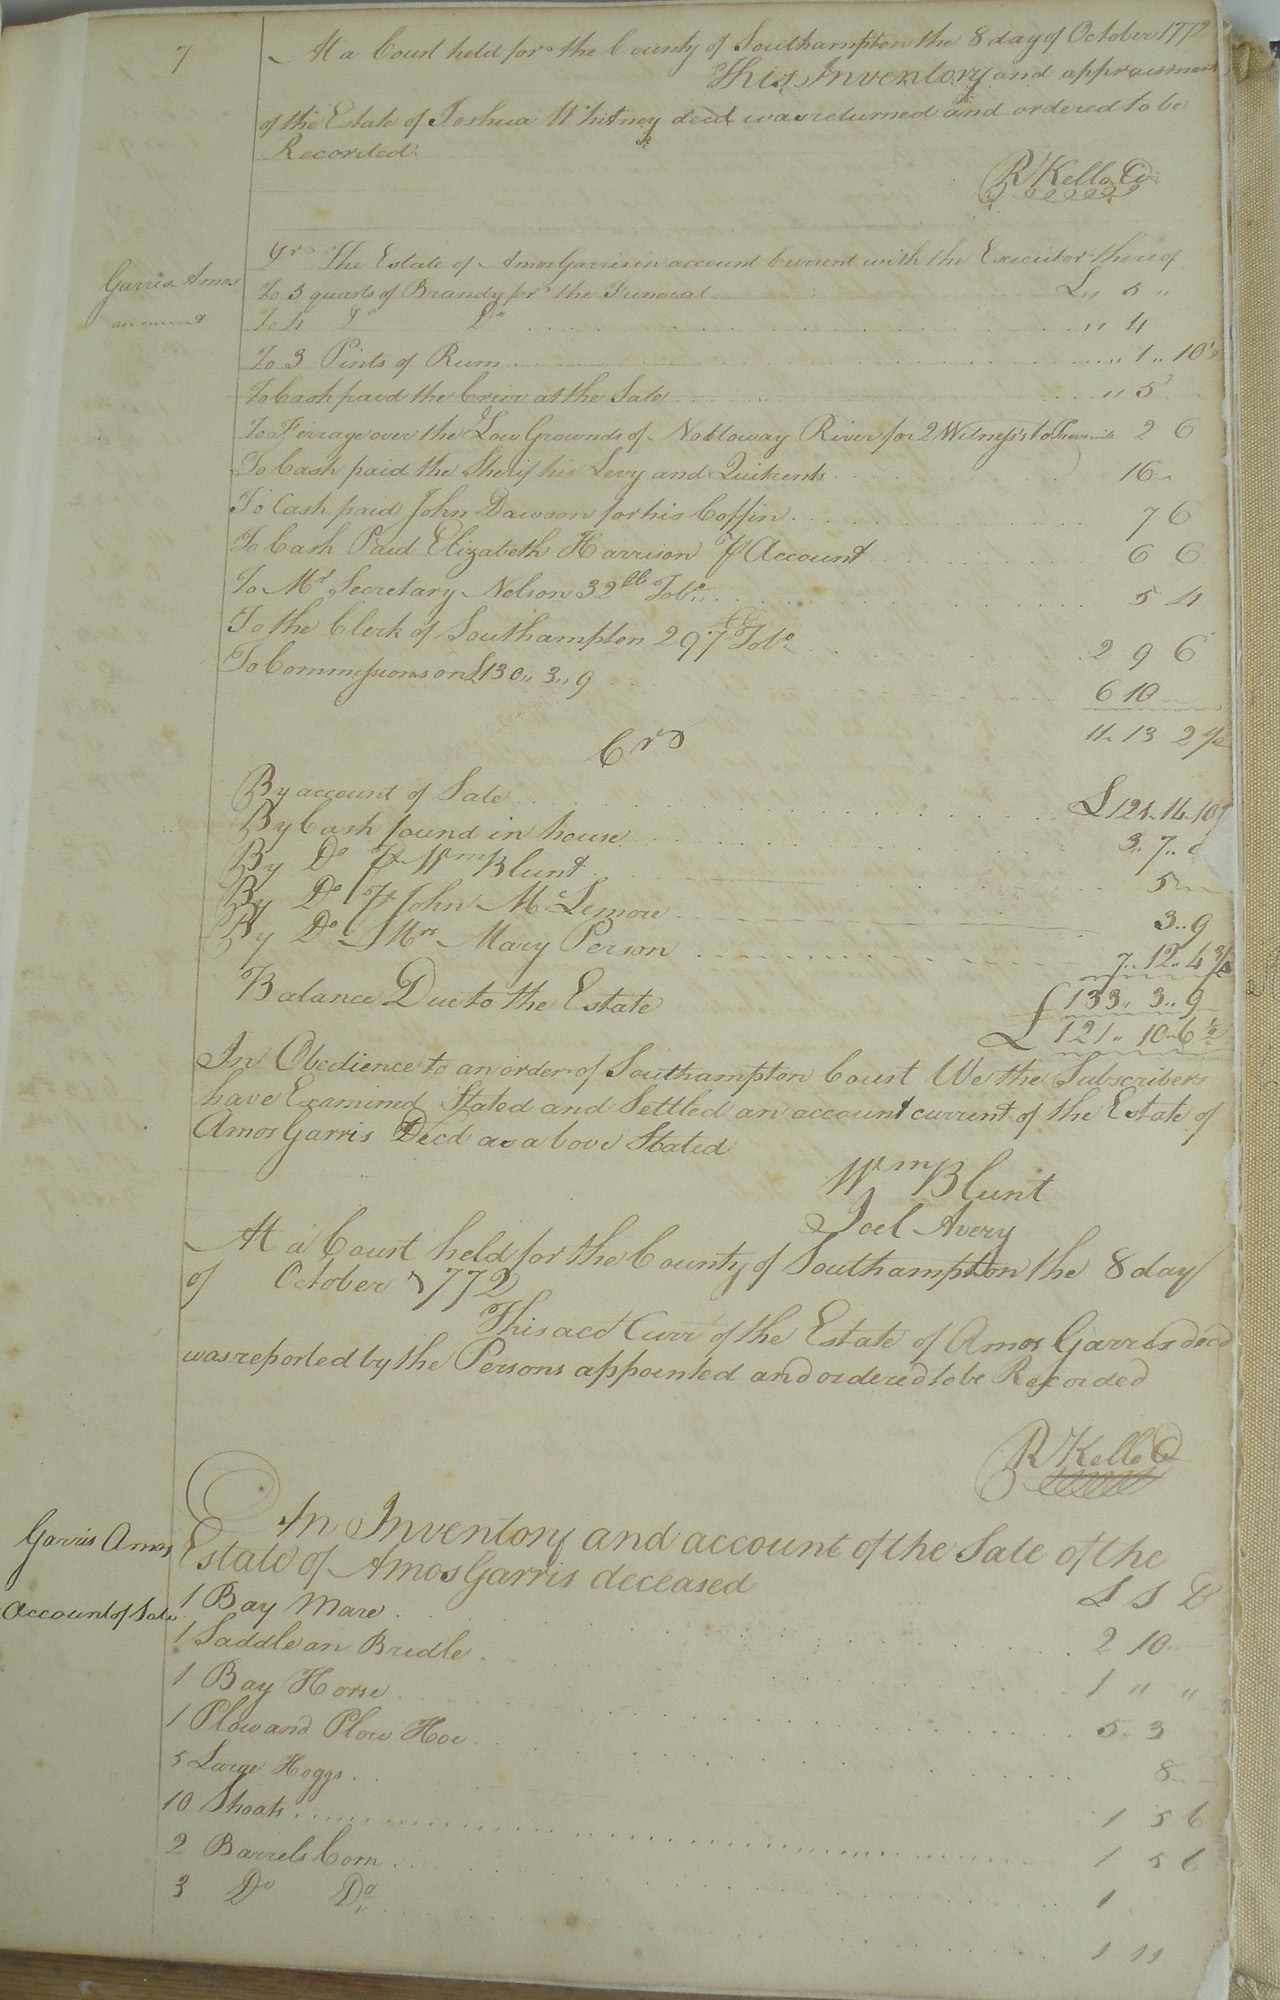 7
At a Court held for the County of Southampton the 8 day of October 1772
This Inventory and appraisment
of the Estate of Joshua Whitney decd was returned and ordered to be
Recorded
R Kello Cr
Garris Amos
account
Drs The Estate of Amos Garris in account Current with the Executor there of
To 5 quarts of Brandy for the Funeral £ ,, 5 ,,
To 4 Do Do ,, 4
To 3 Pints of Rum ,, 1 ,, 10½
To Cash paid the Crier at the Sale ,, 5
To Ferrage over the Low Grounds of Nottoway River for 2 Witness's to the 2 6
To Cash paid the Sherif his Levy and Quitrents 16
To Cash paid John Dawson for his Coffin 7 6
To Cash Paid Elizabeth Harrison ⅌ Account 6 6
To Mr Secretary Nelson 32 lb Tobo 5 4
To the Clerk of Southampton 297 lb Tobo 2 9 6
To Commissions on £130 ,, 3 ,, 9 6 10
11 13 2½
Crs
By account of Sale £121 14 10
By Cash found in house 3 ,, 7 ,,
By Do ⅌ Wm Blunt 5
By Do ⅌ John McLemore 3 ,, 9
By Do ⅌ Mrs Mary Person 7 ,, 12 ,, 4 ¾
£133 ,, 3 ,, 9
Balance Due to the Estate £121 ,, 10 ,, 6 ½
In Obedience to an order of Southampton Court We the Subscribers
have Examined Stated and Settled an account current of the Estate of
Amos Garris Decd as above Stated
Wm Blunt
Joel Avery
At a Court held for the County of Southampton the 8 day
of October 1772
This acct Curr of the Estate of Amos Garris decd
was reported by the Persons appointed and ordered to be Recorded
R Kello C
Garris Amos
Account of Sale
An Inventory and account of the Sale of the
Estate of Amos Garris deceased
£ S D
1 Bay Mare 2 10
1 Saddle an Bridle 1 ,, ,,
1 Bay Horse 5 ,, 3
1 Plow and Plow Hoe 8
5 Large Hoggs 1 5 6
10 Shoats 1 5 6
2 Barrels Corn 1
3 Do Do 1 11